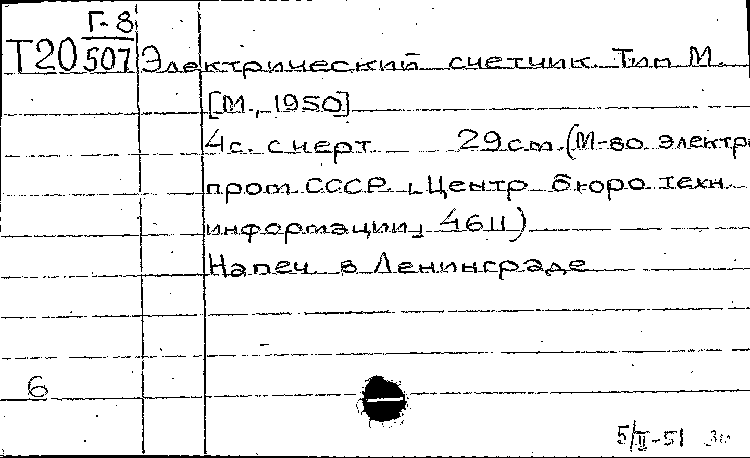 Г-8
Т20 507 Электрический счетчик. Тип М.
[М., 1950]
4с. с черт. 29см. (М-во электро
пром. СССР. Центр. бюро техн.
информации, 4611)
Напеч. в Ленинграде
6
5/II-51 30